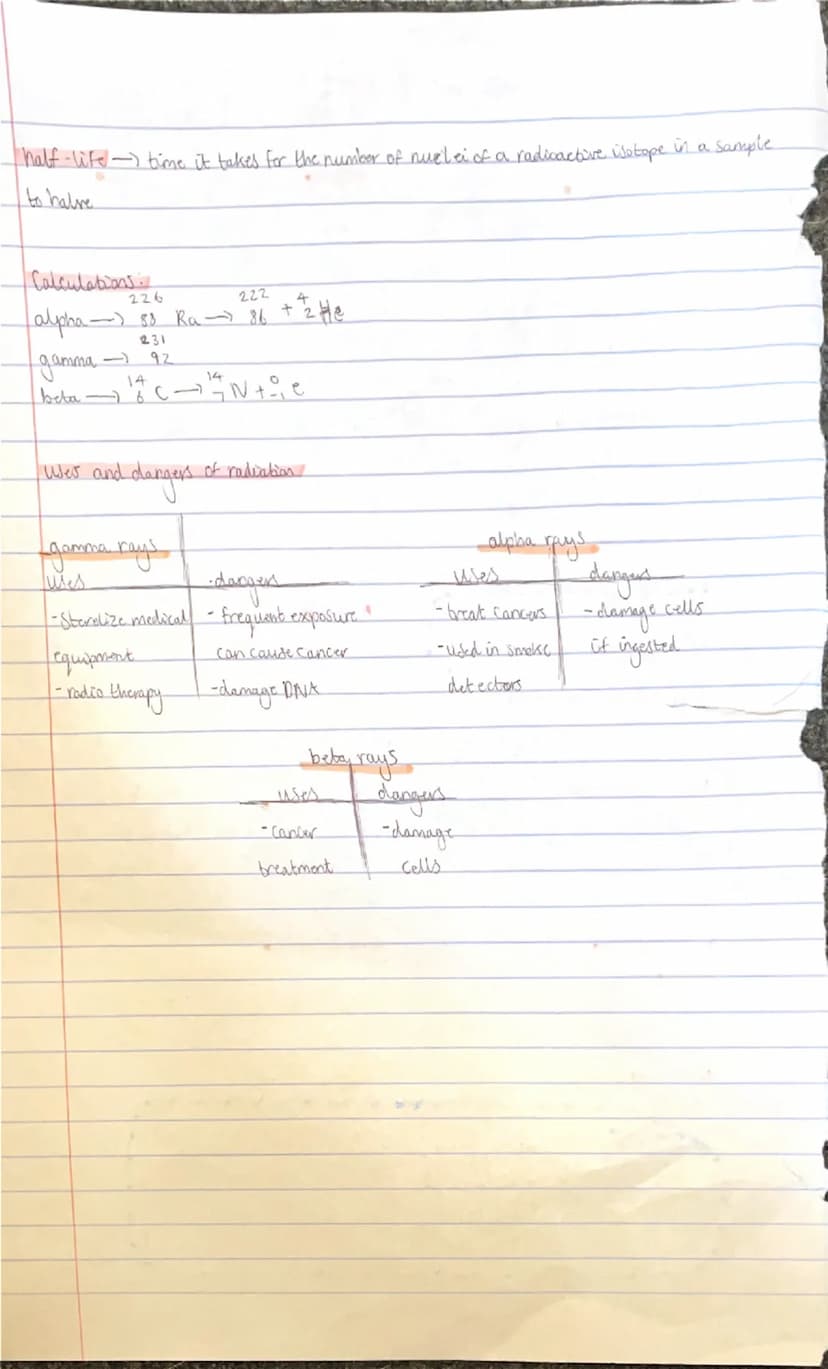 half-life → time it takes for the number of nuclei of a radioactive isotope in a sample
to halve
Calculations:
226 222 4
alpha → 88 Ra → 86 + 2 He
231
gamma → 92
beta → 14 6 C → 14 7 N + 0 -1 e
uses and dangers of radiation
gamma rays
uses dangers
- Sterelize medical - frequent exposure
equipment can cause cancer
- radio therapy - damage DNA
alpha rays
uses dangers
- treat cancers - damage cells
- used in smoke if ingested
detectors
beta rays
uses dangers
- cancer - damage
treatment cells